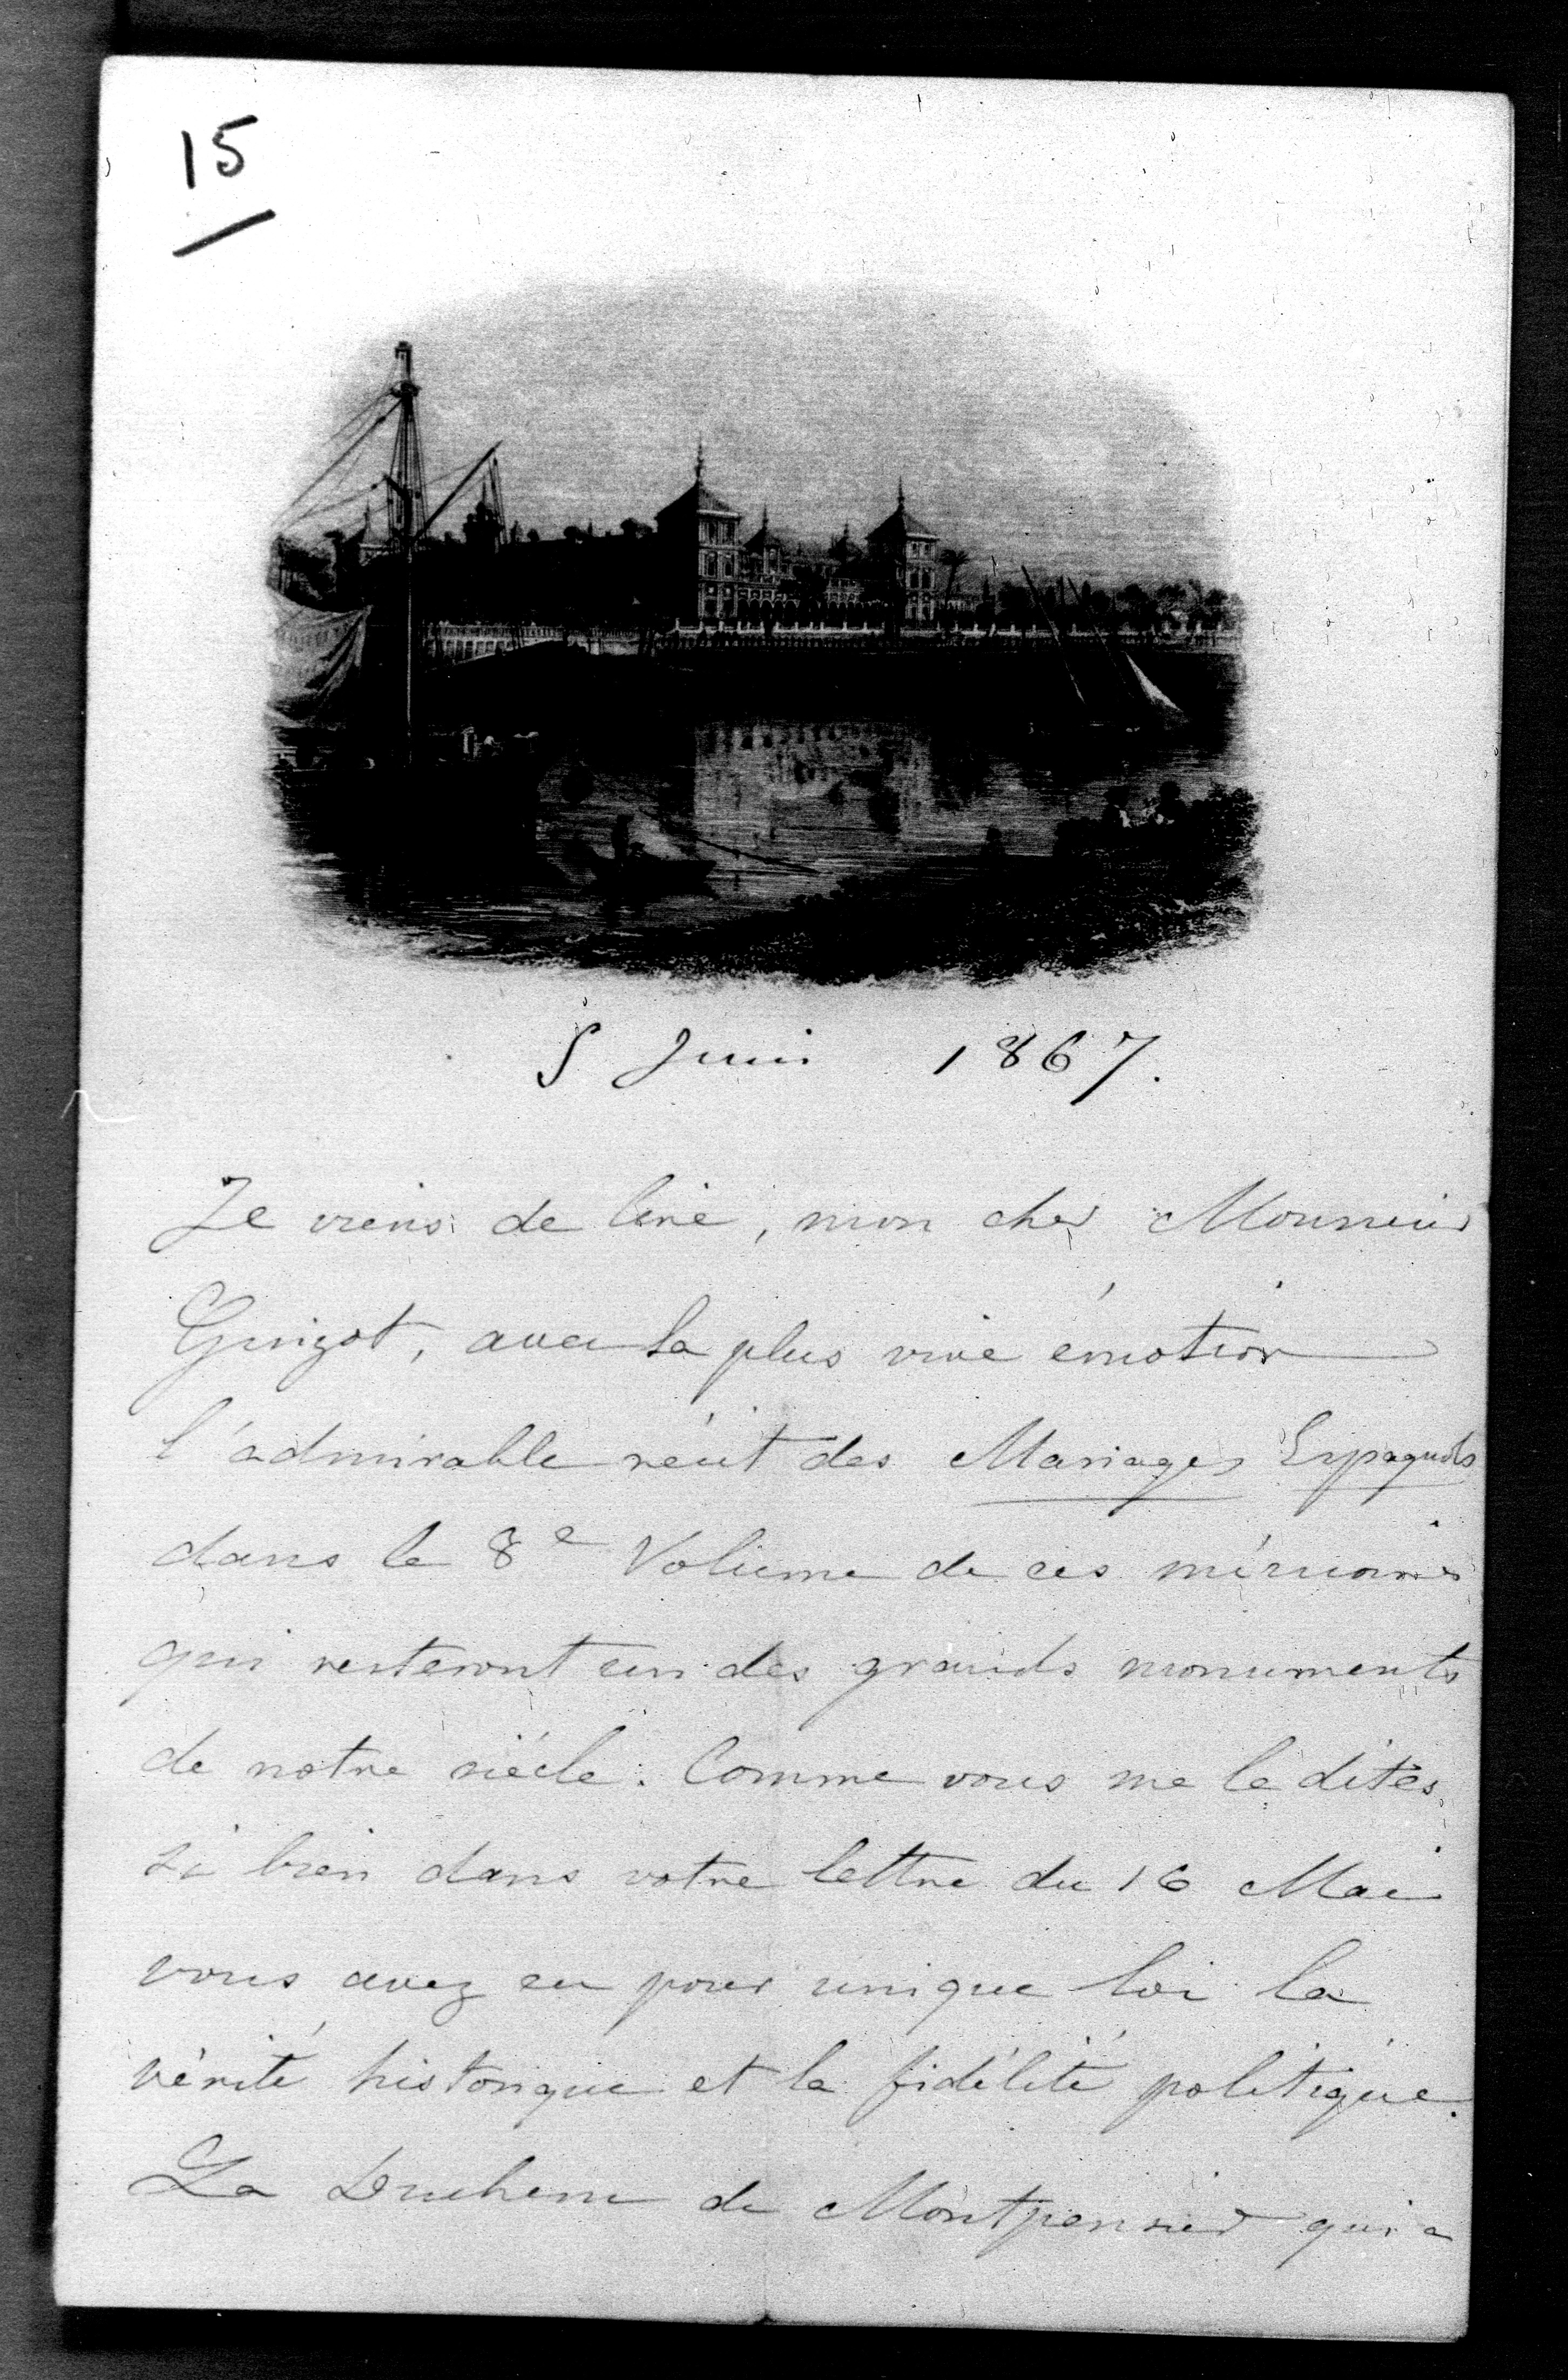 15
5 Juin 1867.
Je viens de lire, mon cher Monsieur
Guizot, avec la plus vive émotion
l'admirable récit des Mariages Espagnols
dans le 8e Volume de ces mémoires
qui resteront un des grands monuments
de notre siécle. Comme vous me le dites
si bien dans votre lettre du 16 Mai
vous avez eu pour unique loi la
vérité historique et la fidélité politique.
La Duchesse de Montpensier qui a